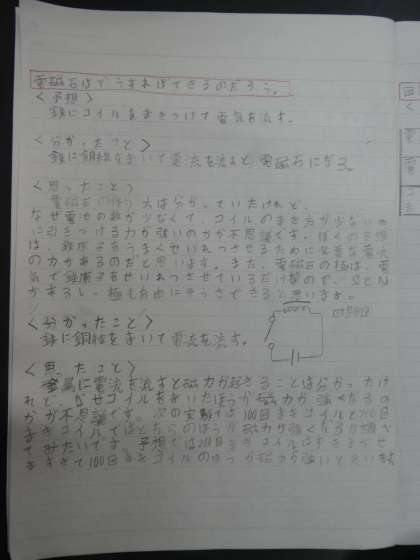 電磁石はどうすればできるのだろう。
<予想>
鉄にコイルをまきつけて電気を流す。
<分かったこと>
鉄に銅線をまいて電流を流すと、電磁石になる。
<思ったこと>
電磁石の作り方は分かっていたけれど、
なぜ電池の数が少なくて、コイルのまき方が少ないの
に引きつける力が強いのかが不思議です。ぼくの予想
は、鉄原子をうまくせいれつさせるために必要な電流
の力があるのだと思います。また、電磁石の極は、電
気で鉄原子をせいれつさせているだけなので、SとN
があるし、極も自由にそうさできると思います。
<分かったこと>
回路図
鉄に銅線をまいて電流を流す。
<思ったこと>
金属に電流を流すと磁力が起きることは分かったけ
れど、なぜコイルをまいたほうが磁力が強くなるの
かが不思議です。次の実験では100回まきコイルと200回
まきコイルではどちらのほうが磁力が強くなるか調べ
てみたいです。予想では200回まきコイルは
まきすぎて100回まきコイルのほうが磁力が強いと思いま